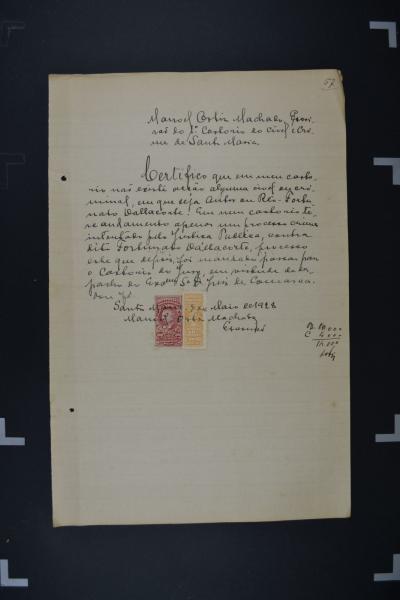 57
Manoel Ortiz Machado, Escri
vão do 1º Cartorio do Civel e Cri
me de Santa Maria.
Certifico que em meu carto-
rio não existe acção alguma civel ou cri
minal, em que seja Autor ou Réo-Fortu-
nato Dallacorte. Em meu cartorio te-
ve andamento apenas um processo crime
intentado pela Justiça Publica, contra
dito Fortunato Dallacorte, processo
este que depois, foi mandado passar para
o Cartorio do Jury, em virtude de des-
pacho do Exmo Sr. Dr. Juiz da Comarca.
Dou fé.
Santa Maria, Maio de 1928
Manoel Ortiz Machado
Escrivão